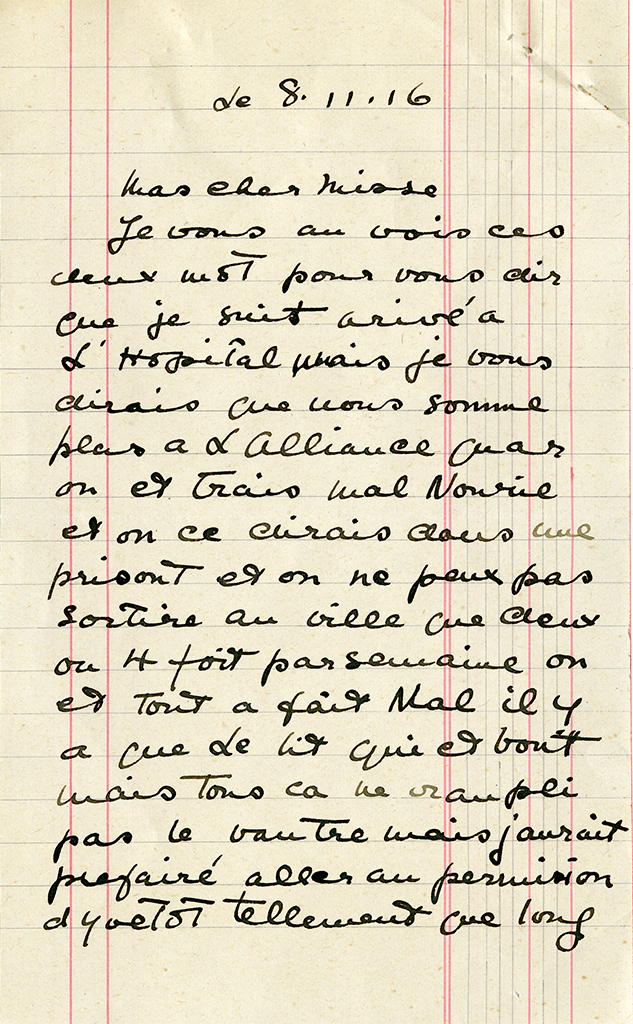 Le 8.11.16
Mas cher Misse
Je vous au vois ces
deux môt pour vous dir
que je suit arivé a
L'Hopital mais je vous
dirais que nous somme
plus a L'Alliance quar
on et trais mal Nourie
et on ce dirais dans une
prisont et on ne peux pas
sortire au ville que deux
ou 4 foit par semaine on
et tout a fait Mal il y
a que Le lit qui et bontt
mais tous ca ne vranpli
pas le vantre mais jaurait
prefairé aller au permision
d yvetôt tellement que long